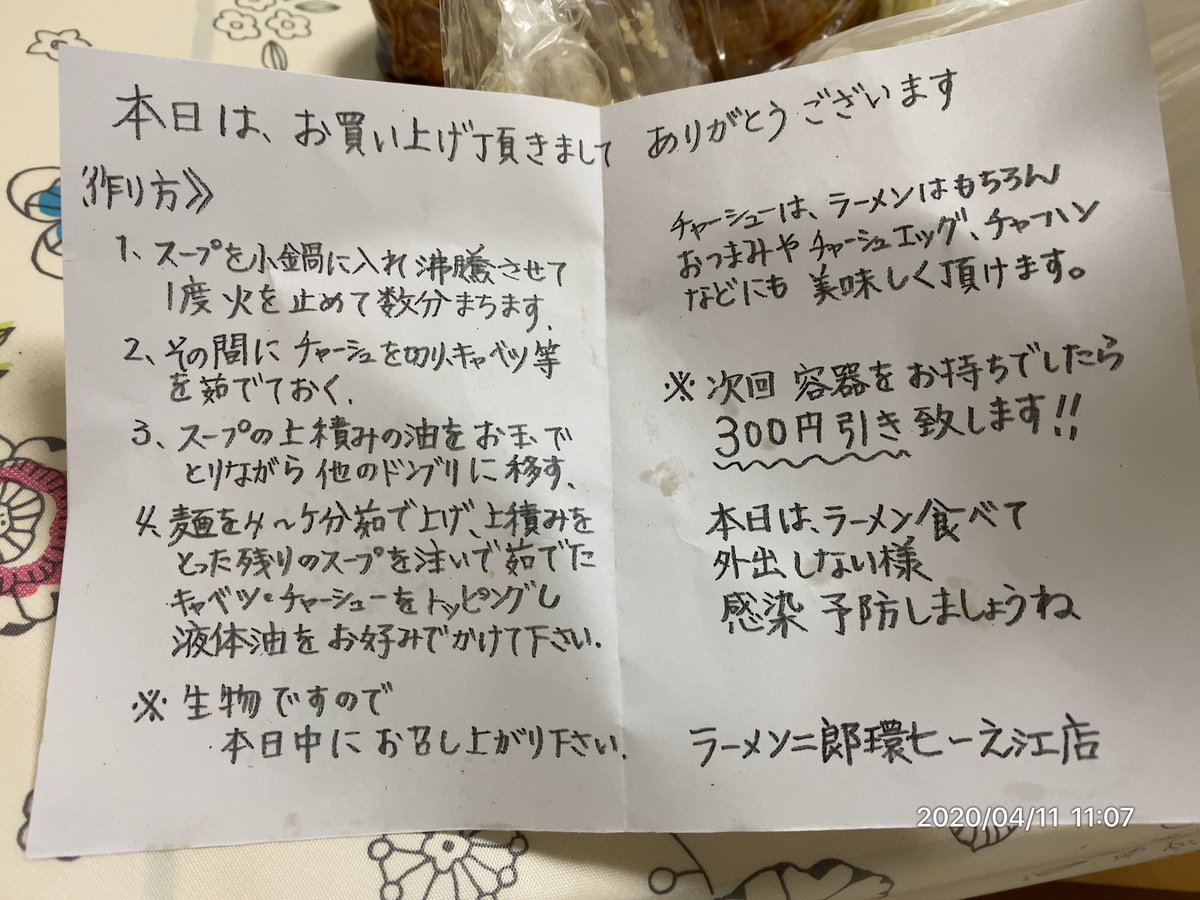 本日は、お買い上げ頂きまして ありがとうございます
《作り方》
1、スープを小鍋に入れ沸騰させて
1度火を止めて数分まちます.
2、その間にチャーシュを切り、キャベツ等
を茹でておく.
3、スープの上積みの油をお玉で
とりながら他のドンブリに移す、
4、麺を4〜5分茹で上げ、上積みを
とった残りのスープを注いで茹でた
キャベツ・チャーシューをトッピングし
液体油をお好みでかけて下さい.
※ 生物ですので
本日中にお召し上がり下さい.
チャーシューは、ラーメンはもちろん
おつまみやチャーシュエッグ、チャーハン
などにも美味しく頂けます。
※ 次回 容器をお持ちでしたら
300円引き致します!!
本日は、ラーメン食べて
外出しない様
感染予防しましょうね
ラーメン二郎環七一之江店
2020/04/11 11:07